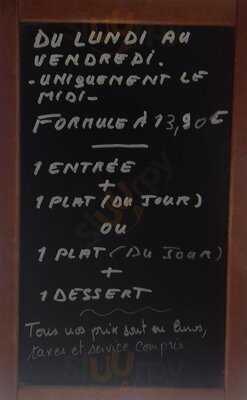 DU LUNDI AU
VENDREDI.
- UNIQUEMENT LE
MIDI -
FORMULE À 13,90€
1 ENTRÉE
+
1 PLAT (DU JOUR)
OU
1 PLAT (DU JOUR)
+
1 DESSERT
Tous nos prix sont en Euros,
taxes et service compris